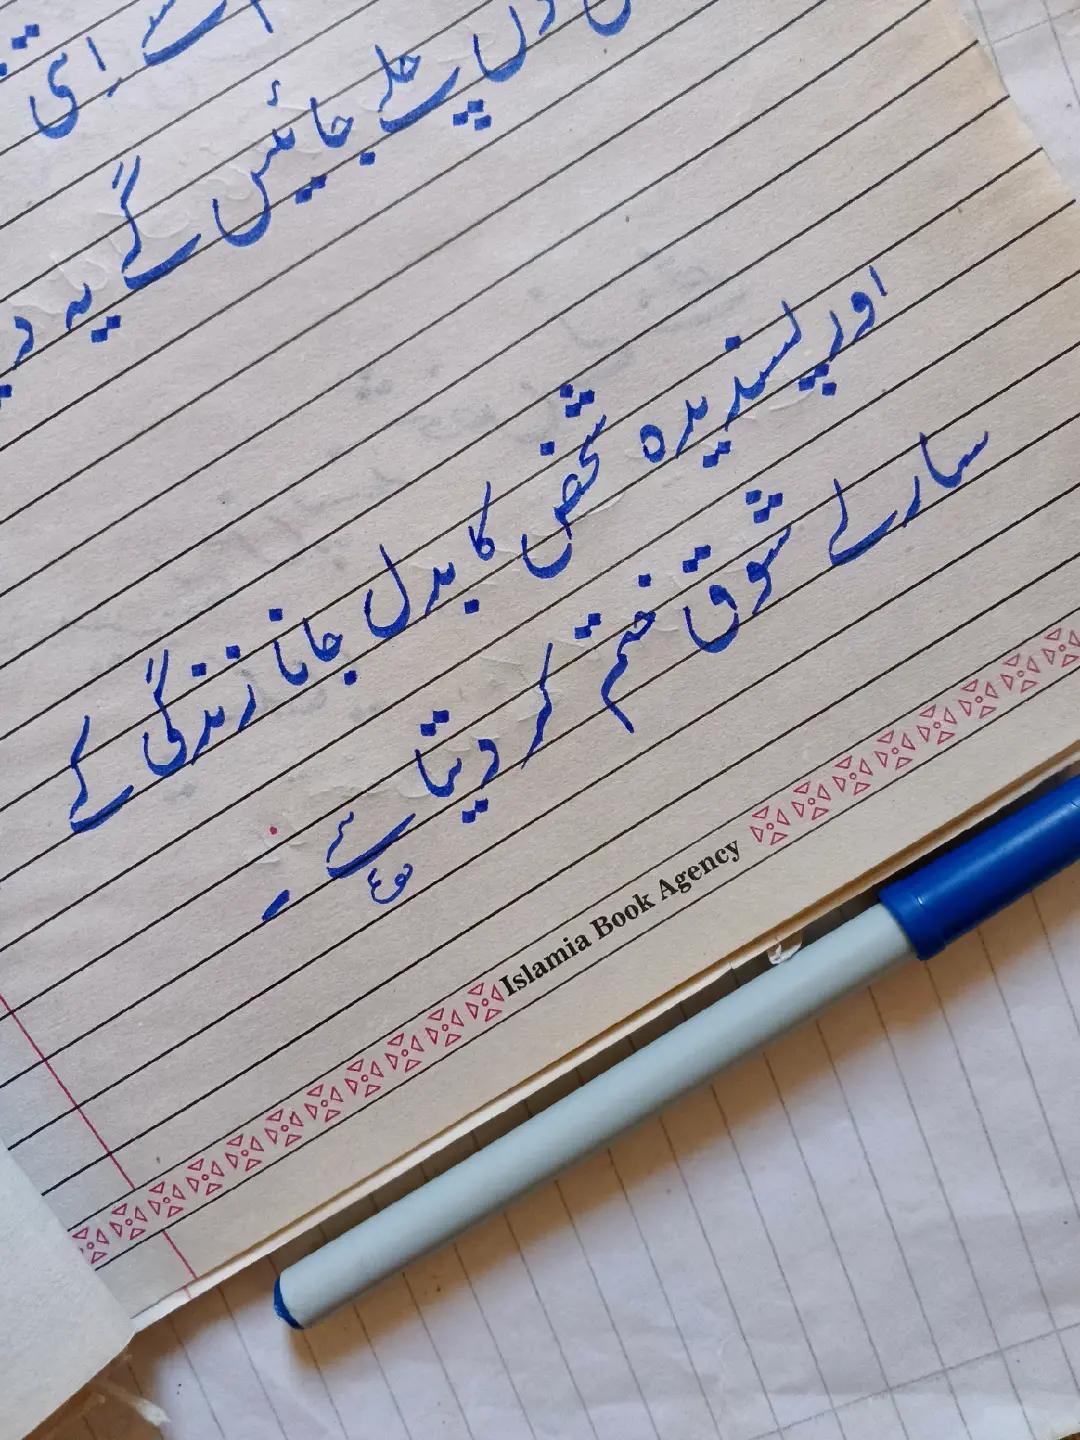 اتنی
دل پہ چلے جائیں گے یہ
اور پسندیدہ شخص کا بدل جانا زندگی کے
سارے شوق ختم کر دیتا ہے ۔
Islamia Book Agency